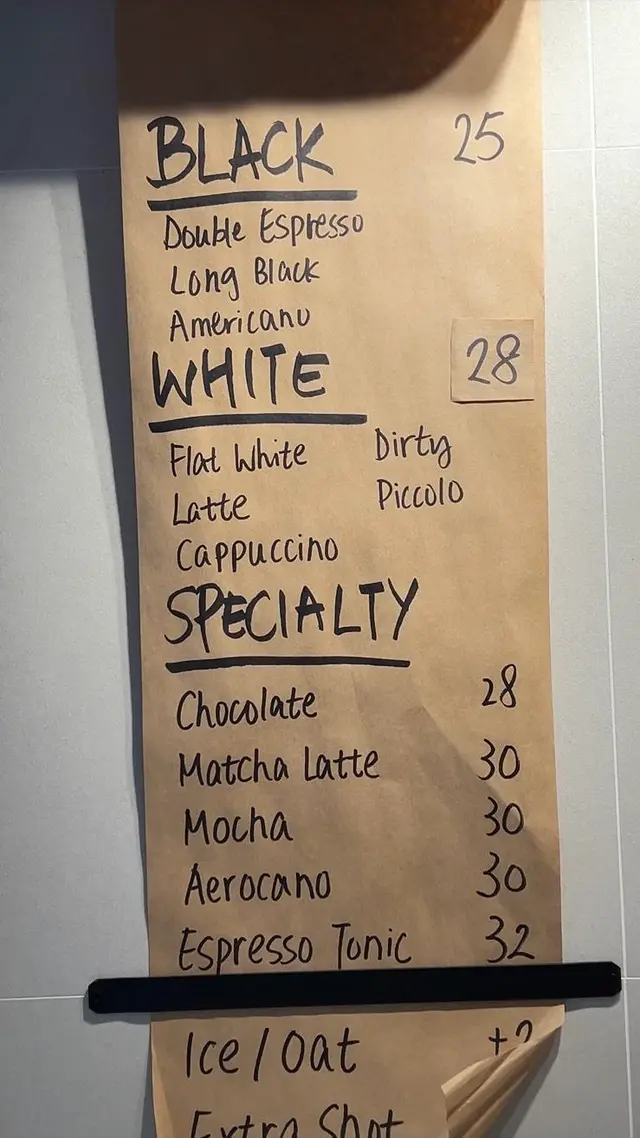 BLACK 25
Double Espresso
Long Black
Americano
WHITE 28
Flat White Dirty
Latte Piccolo
Cappuccino
SPECIALTY
Chocolate 28
Matcha Latte 30
Mocha 30
Aerocano 30
Espresso Tonic 32
Ice/Oat
Extra Shot